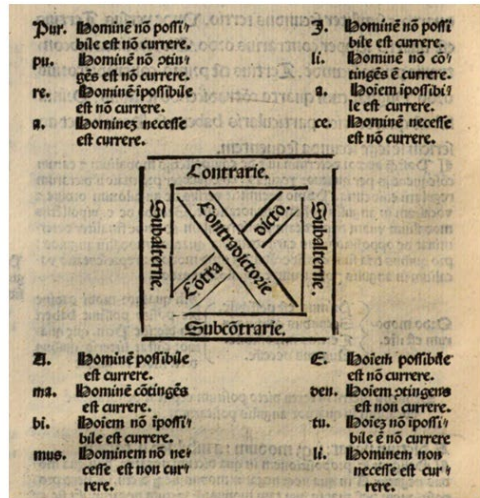 Pur. Hominē nō possi-
bile est nō currere.
pu. Hominē nō ↄtin-
gēs est nō currere.
re. Hominē īpossibile
est nō currere.
a. Hominez necesse
est nō currere.
J. Hominē nō possi
bile est currere.
li. Hominē nō cō-
tingēs ē currere.
a. Hoiem īpossibi-
le est currere.
ce. Hominē necesse
est nō currere.
Contrarie.
Subalterne.
Contradictorie
Cōtra
dicto.
Subalterne.
Subcōtrarie.
A. Hominē possibile
est currere.
ma. Hominē cōtingēs
est currere.
bi. Hoiem nō īpossi-
bile est currere.
mus. Hominem nō ne-
cesse est non cur-
rere.
E. Hoiem possibile
est nō currere.
den. Hoiem ↄtingens
est non currere.
tu. Hoiez nō īpossi-
bile ē nō currere.
li. Hominem non
necesse est cur-
rere.